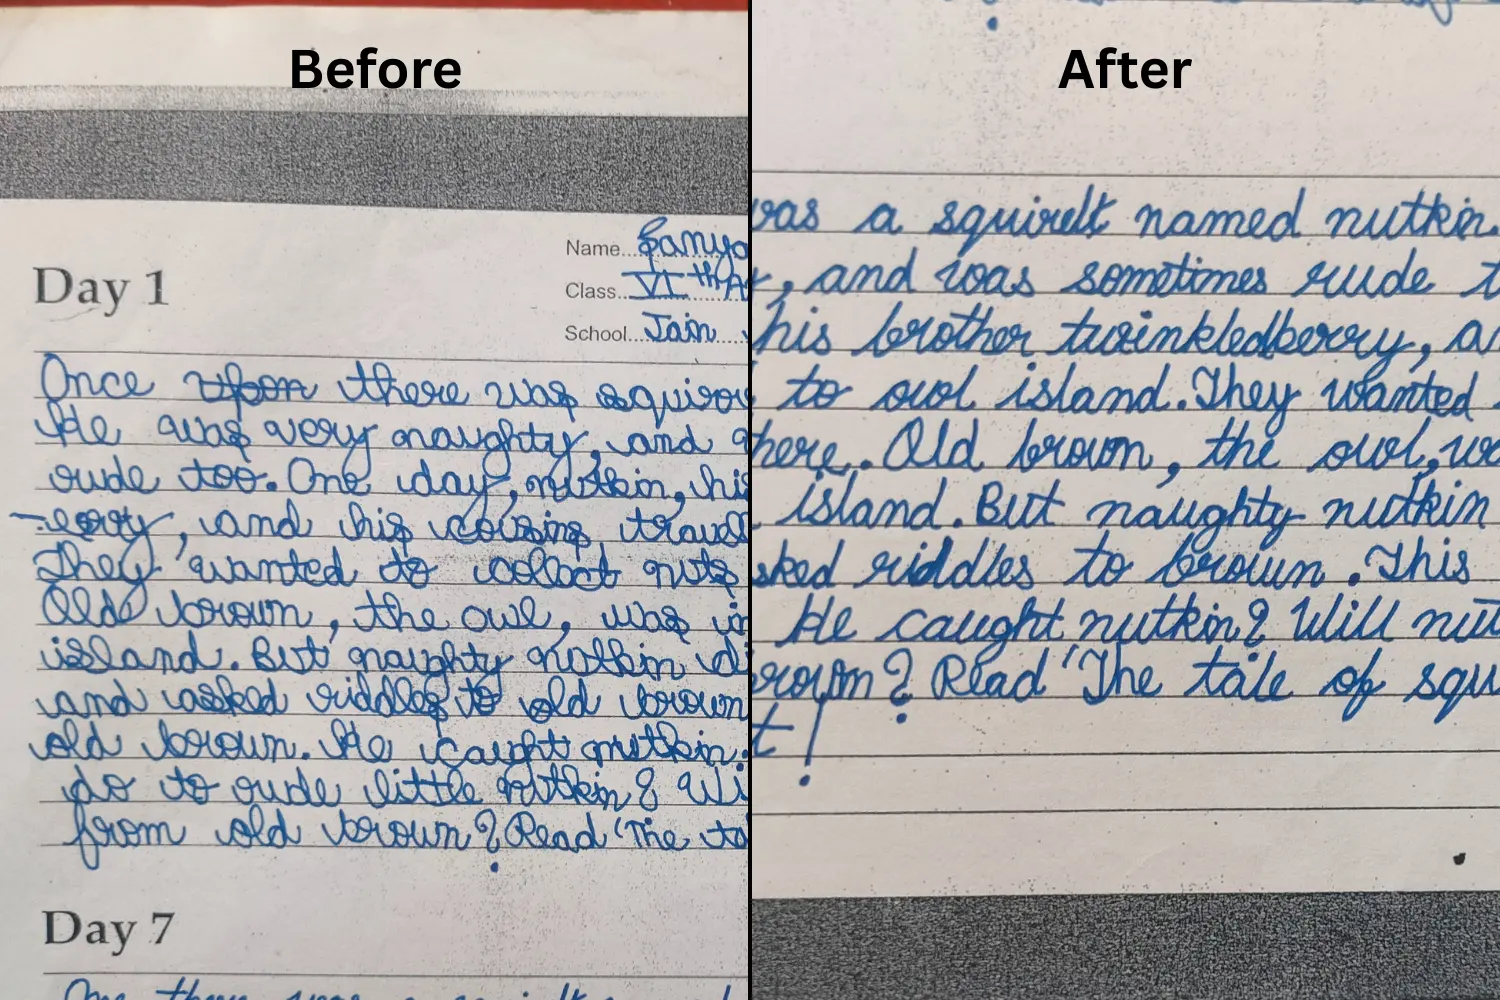 Before
Name...Sanya
Day 1
Class...VI th A
School...Jain
Once upon there was squirr
He was very naughty, and
rude too. One day, nutkin, his
-erry, and his cousins, travell
They wanted to collect nuts
Old brown, the owl, was in
island. But naughty nutkin di
and asked riddles to old brown
old brown. He caught nutkin.
do to rude little nutkin? Wi
from old brown? Read 'The ta
Day 7
One there was a squirelt named
After
was a squirelt named nutkin.
, and was sometimes rude t
his brother twinkledberry, an
to owl island. They wanted
here. Old brown, the owl, wa
island. But naughty nutkin
sked riddles to brown. This
He caught nutkin? Will nut
brown? Read 'The tale of squ
t!